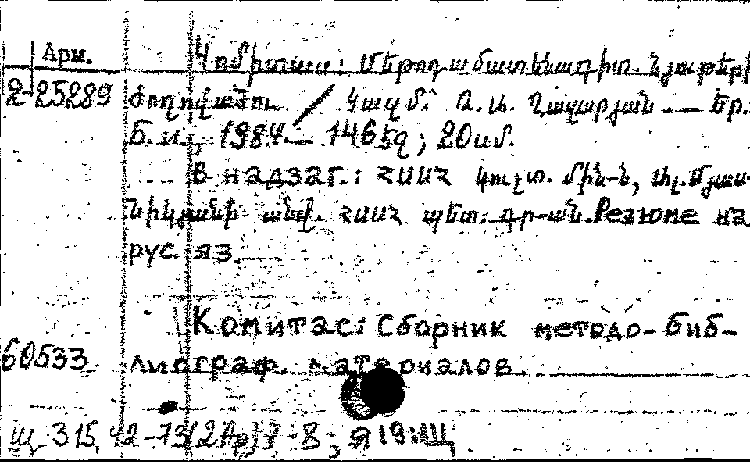 Арм.
Կոմիտաս: Մեթոդ-մատենագիտ. նյութերի
2-25289 ժողովածու / Կազմ.՝ Ռ. Ա. Ղազարյան. — Եր.:
Б. и., 1984. — 146 էջ; 20 սմ.
В надзаг.: ՀՍՍՀ կուլտ. մին-ն, Ալ. Մյաս-
նիկյանի անվ. ՀՍՍՀ պետ. գր-ան. Резюме на
рус. яз.
Комитас: Сборник методо-биб-
60533 лиограф. материалов.
Щ 315.42-73(2Ар)7-8; я19:Щ